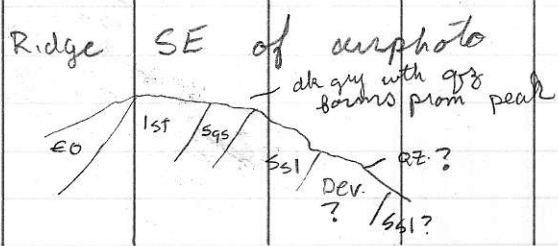 Ridge SE of airphoto
dk gry with qz
forms prom peak
€O
lst
Sqs
Ssl
QZ.?
Dev.
?
Ssl?